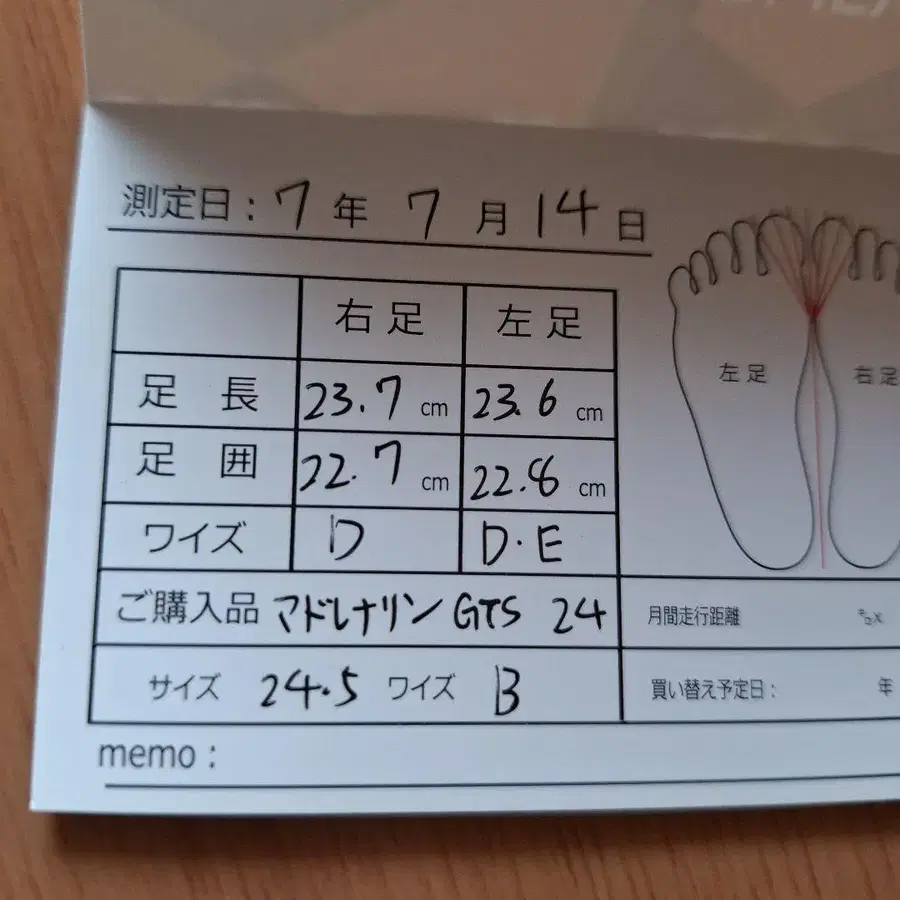 測定日：7年7月14日
右足 左足
足長 23.7 cm 23.6 cm
足囲 22.7 cm 22.8 cm
ワイズ D D・E
ご購入品 アドレナリン GTS 24
サイズ 24.5 ワイズ B
memo：
左足 右足
月間走行距離 キロ
買い替え予定日： 年